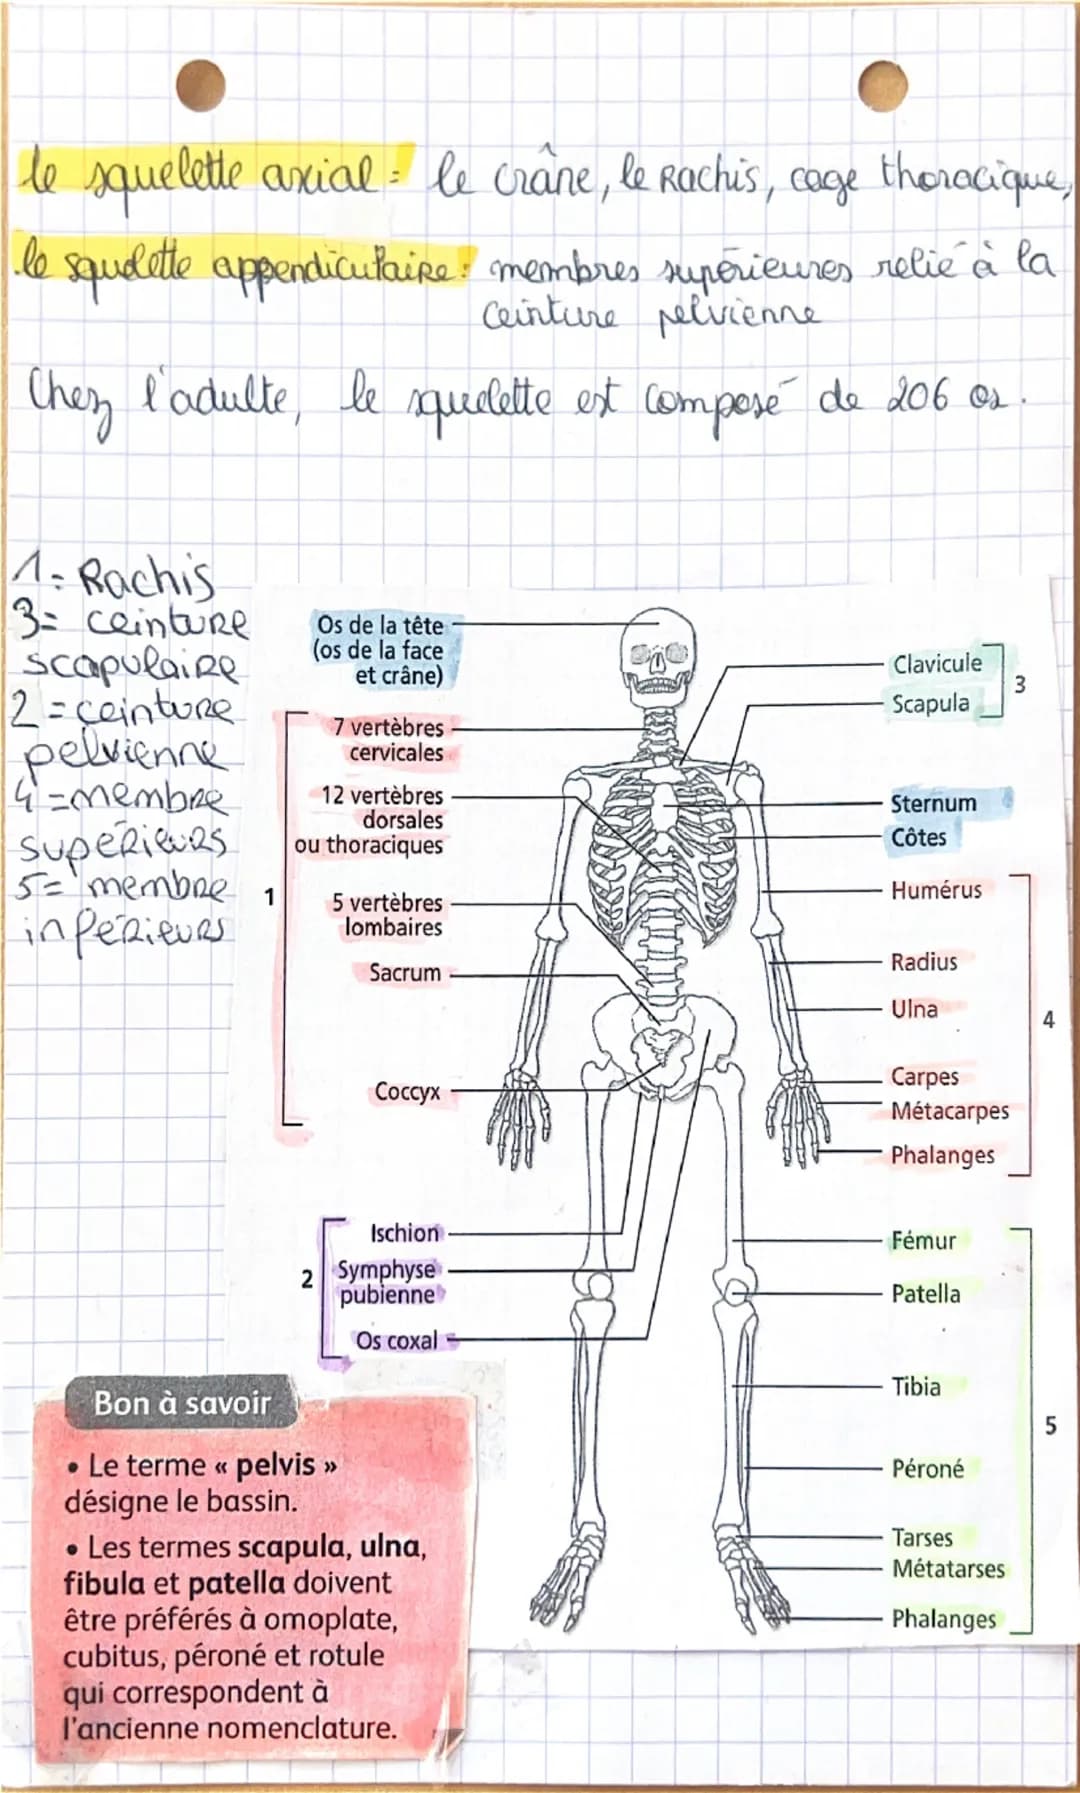 le squelette axial = le crâne, le Rachis, cage thoracique,
le squelette appendiculaire : membres supérieures relié à la
ceinture pelvienne
Chez l'adulte, le squelette est composé de 206 os.
1 = Rachis
3 = ceinture
scapulaire
2 = ceinture
pelvienne
4 = membre
supérieurs
5 = membre
inférieurs
Os de la tête
(os de la face
et crâne)
7 vertèbres
cervicales
12 vertèbres
dorsales
ou thoraciques
5 vertèbres
lombaires
Sacrum
Coccyx
1
Ischion
Symphyse
pubienne
Os coxal
2
Clavicule
Scapula
3
Sternum
Côtes
Humérus
Radius
Ulna
Carpes
Métacarpes
Phalanges
4
Fémur
Patella
Tibia
Péroné
Tarses
Métatarses
Phalanges
5
Bon à savoir
• Le terme « pelvis »
désigne le bassin.
• Les termes scapula, ulna,
fibula et patella doivent
être préférés à omoplate,
cubitus, péroné et rotule
qui correspondent à
l'ancienne nomenclature.